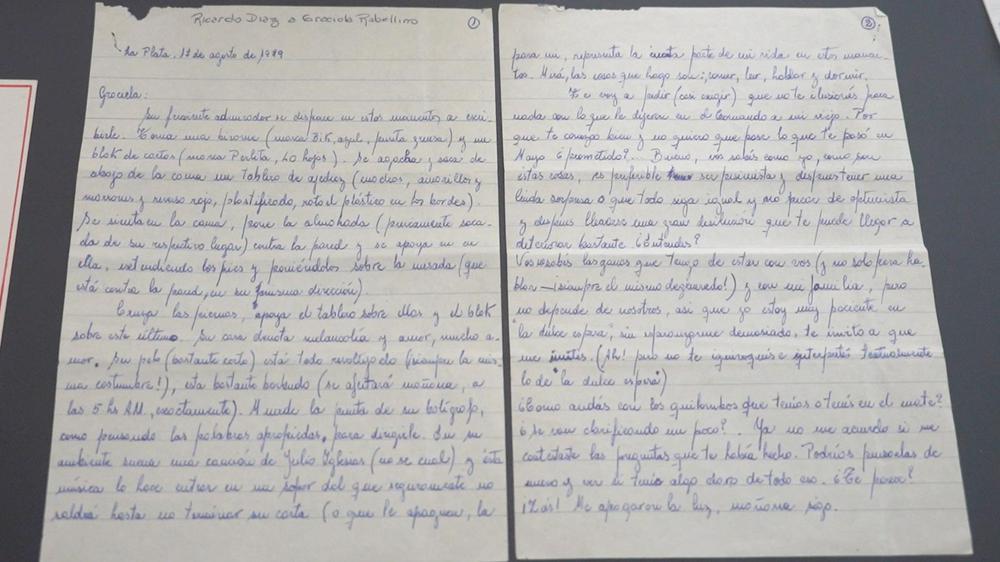 Ricardo Diaz a Graciela Rabellino
1
La Plata, 17 de agosto de 1979
Graciela:
Su ferviente admirador se dispone en estos momentos a escri-
birle. Toma una birome (marca Bik, azul, punta gruesa) y un
blok de cartas (marca Perlita, 40 hojas). Se agacha y saca de
abajo de la cama un tablero de ajedrez (mochos, amarillos y
marrones y reverso rojo, plastificado, roto el plástico en los bordes).
Se sienta en la cama, pone la almohada (previamente saca-
da de su respectivo lugar) contra la pared y se apoya en en
ella, extendiendo los pies y poniéndolos sobre la mesada (que
está contra la pared, en su misma dirección).
Cruza las piernas, apoya el tablero sobre ellas y el blok
sobre este último. Su cara denota melancolía y amor, mucho a-
mor. Su pelo (bastante corto) está todo revoltijado (siempre la mis-
ma costumbre!), esta bastante barbudo (se afeitará mañana, a
las 5 hs A.M., exactamente). Muerde la punta de su bolígrafo,
como pensando las palabras apropiadas, para dirigirle. En su
ambiente suena una canción de Julio Iglesias (no se cual) y ésta
música lo hace entrar en un sopor del que seguramente no
saldrá hasta no terminar su carta (o que le apaguen, la
2
para mi, representa la cuarta parte de mi vida en estos momen-
tos. Mirá, las cosas que hago son: comer, leer, hablar y dormir.
Te voy a pedir (casi exigir) que no te ilusionés para
nada con lo que le dijeron en el Comando a mi viejo. Por
que te conozco bien y no quiero que pase lo que te pasó en
Mayo ¿prometido?... Bueno, vos sabés como yo, como son
estas cosas, es preferible ser pesimista y despues tener una
linda sorpresa o que todo siga igual y no pecar de optimista
y despues llevarse una gran desilusión que te puede llegar a
deteriorar bastante. ¿Entendes?
Vos sabés las ganas que tengo de estar con vos (y no solo para ha-
blar — ¡siempre el mismo degenerado!) y con mi familia, pero
no depende de nosotros, asi que yo estoy muy paciente en
"la dulce espera", sin esperanzarme demasiado, te invito a que
me imites. (Ah! pero no te equivoques e interpretés textualmente
lo de "la dulce espera")
¿Como andás con los quilombos que tenias o tenés en el mate?
¿se van clarificando un poco?. Ya no me acuerdo si me
contestaste las preguntas que te había hecho. Podrias pensarlas de
nuevo y ver si tenés algo claro de todo eso. ¿Te parece?
¡Zás! Me apagaron la luz, mañana sigo.